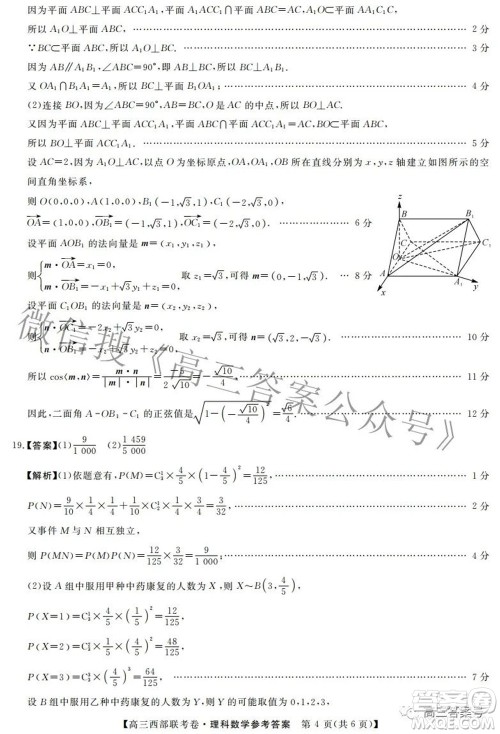 因为平面ABC⊥平面ACC₁A₁，平面A₁ACC₁∩平面ABC=AC，A₁O⊥AC，
所以A₁O⊥平面ABC. …… 2分
∵BC⊂平面ABC，所以A₁O⊥BC. …… 3分
因为AB∥A₁B₁，∠ABC=90°，即AB⊥BC，所以A₁B₁⊥BC.
又OA₁∩A₁B₁=A₁，所以BC⊥平面OA₁B₁. …… 4分
(2)连接BO，因为∠ABC=90°，AB=BC，O是AC的中点，所以BO⊥AC.
又因为平面ABC⊥平面ACC₁A₁，平面ABC∩平面ACC₁A₁=AC，
所以BO⊥平面ACC₁A₁. …… 5分
设AC=2，因为A₁O⊥AC，以点O为坐标原点，OA，OA₁，OB所在直线分别为x，y，z轴建立如图所示的空
间直角坐标系，
则O(0,0,0)，A(1,0,0)，B₁(-1,√3,1)，C₁(-2,√3,0)，
OA=(1,0,0)，OB₁=(-1,√3,1)，OC₁=(-2,√3,0). …… 6分
设平面AOB₁的法向量是m=(x₁,y₁,z₁)，
则{m·OA=x₁=0，m·OB₁=-x₁+√3y₁+z₁=0， 取z₁=√3，可得m=(0,-1,√3). …… 8分
设平面C₁OB₁的法向量是n=(x₂,y₂,z₂)，
则{n·OC₁=-2x₂+√3y₂=0，n·OB₁=-x₂+√3y₂+z₂=0， 取x₂=√3，可得n=(√3,2,-√3). …… 10分
所以cos⟨m,n⟩=m·n/|m|·|n|=-5/2√10=-√10/4. …… 11分
因此，二面角A-OB₁-C₁的正弦值是√(1-(-√10/4)²)=√6/4. …… 12分
z
B
B₁
C
C₁
O
A
A₁
x
y
19.【答案】(1)9/1 000 (2)1 459/5 000
【解析】(1)依题意有，P(M)=C₃¹×4/5×(1-4/5)²=12/125， …… 1分
P(N)=9/10×1/4×1/4+1/10×C₂¹×1/4×3/4=3/32， …… 2分
又事件M与N相互独立，
则P(MN)=P(M)P(N)=12/125×3/32=9/1 000； …… 4分
(2)设A组中服用甲种中药康复的人数为X，则X~B(3,4/5)，
P(X=1)=C₃¹×(4/5)×(1/5)²=12/125，
P(X=2)=C₃²×(4/5)²×(1/5)=48/125，
P(X=3)=C₃³×(4/5)³=64/125， …… 7分
设B组中服用乙种中药康复的人数为Y，则Y的可能取值为0，1，2，3，
【高三西部联考卷·理科数学参考答案 第4页(共6页)】
微信搜《高三答案公众号》
高三答案号